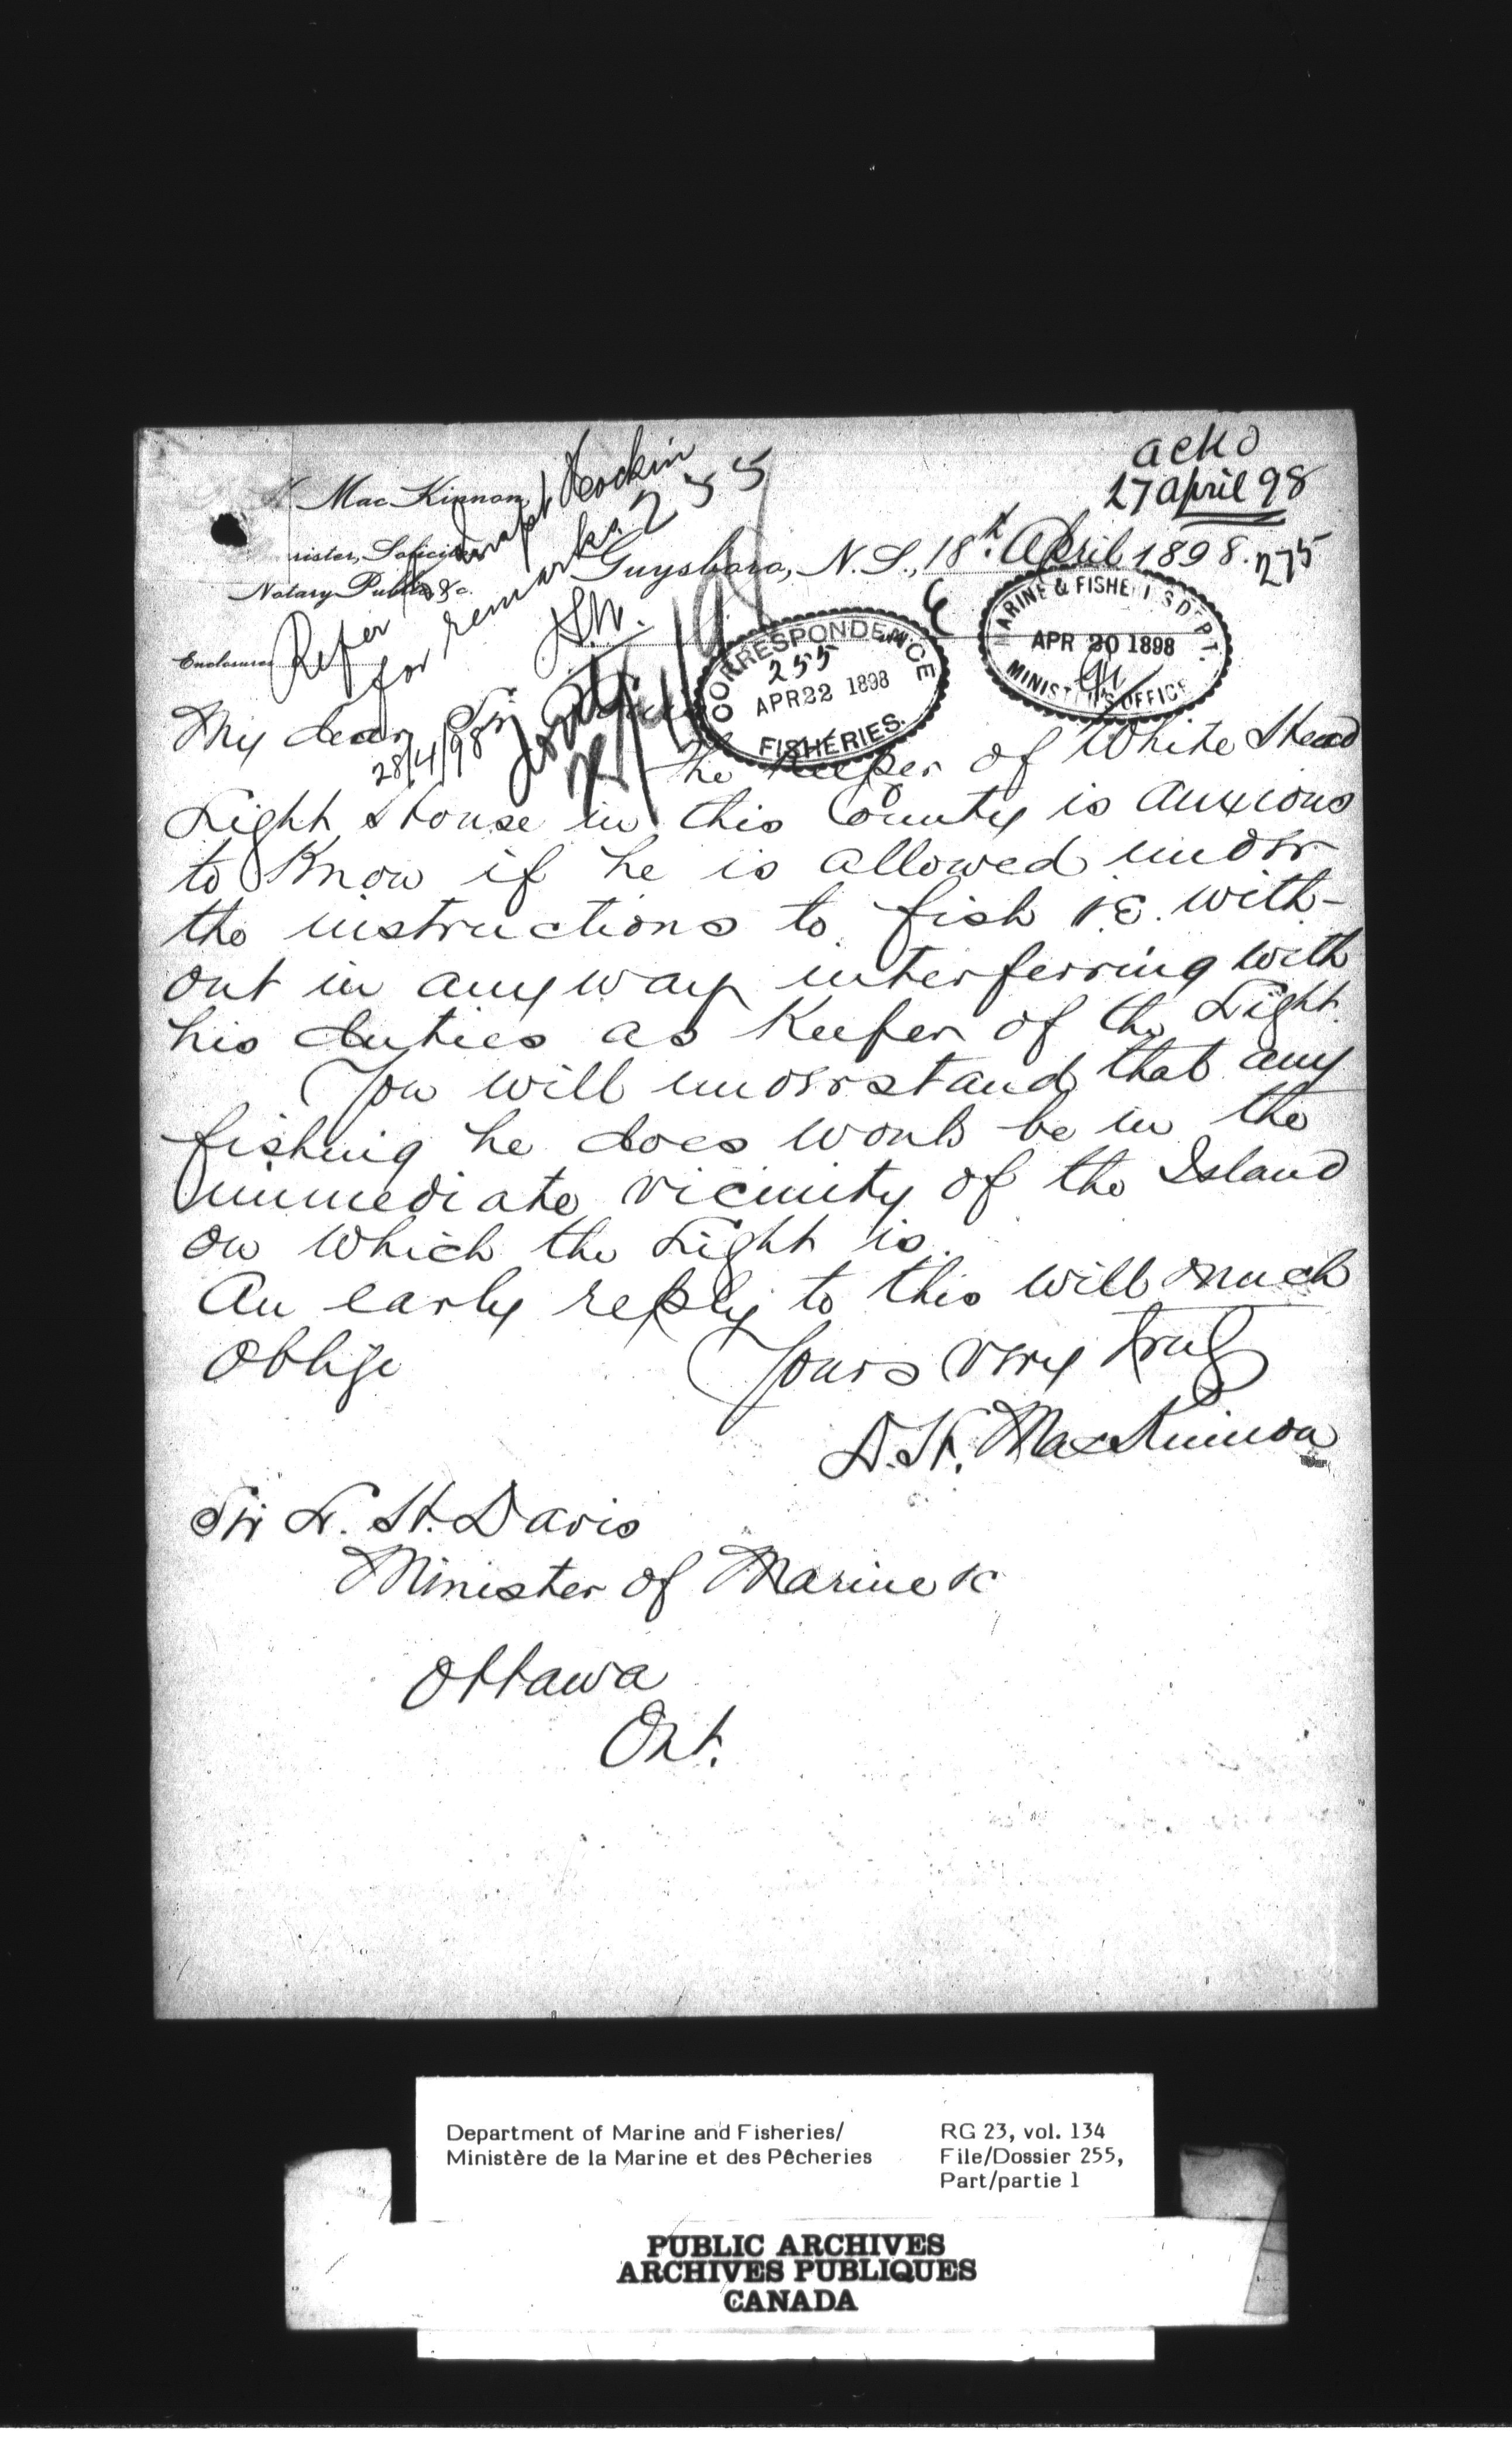 ackd
27 april 98
Mac Kinnon,
rister, Solicitor
Notary Public &c.
Enclosures
Refer to Capt Hockin
for remarks. 255
28/4/98
Guysboro, N.S., 18th April 1898.
275
CORRESPONDENCE
255
APR 22 1898
FISHERIES.
MARINE & FISHERIES DEPT.
APR 20 1898
MINISTER'S OFFICE
My dear Sir
The Keeper of White Head
Light House in this County is anxious
to know if he is allowed under
the instructions to fish i.e. with-
out in anyway interferring with
his duties as Keeper of the Light.
You will understand that any
fishing he does would be in the
immediate vicinity of the Island
on which the Light is.
An early reply to this will much
oblige
Yours very truly
MacKinnon
Sir L. H. Davis
Minister of Marine &c
Ottawa
Ont.
Department of Marine and Fisheries/
Ministère de la Marine et des Pêcheries
RG 23, vol. 134
File/Dossier 255,
Part/partie 1
PUBLIC ARCHIVES
ARCHIVES PUBLIQUES
CANADA